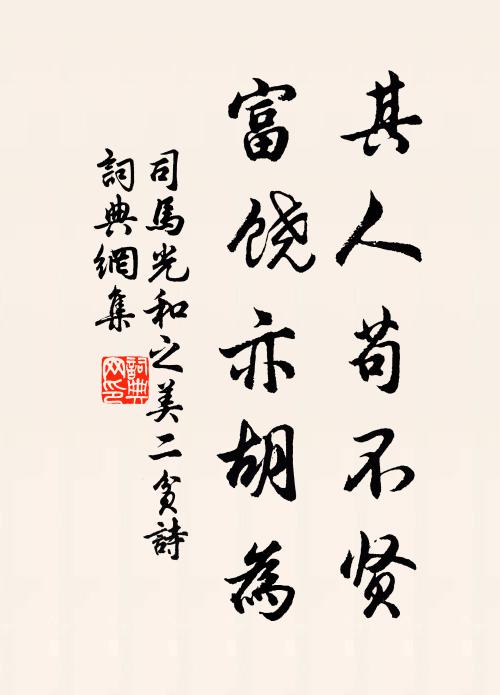 其人苟不贤
富饶亦胡為
司馬光和之美二貧詩
詞典網集
詞典网印